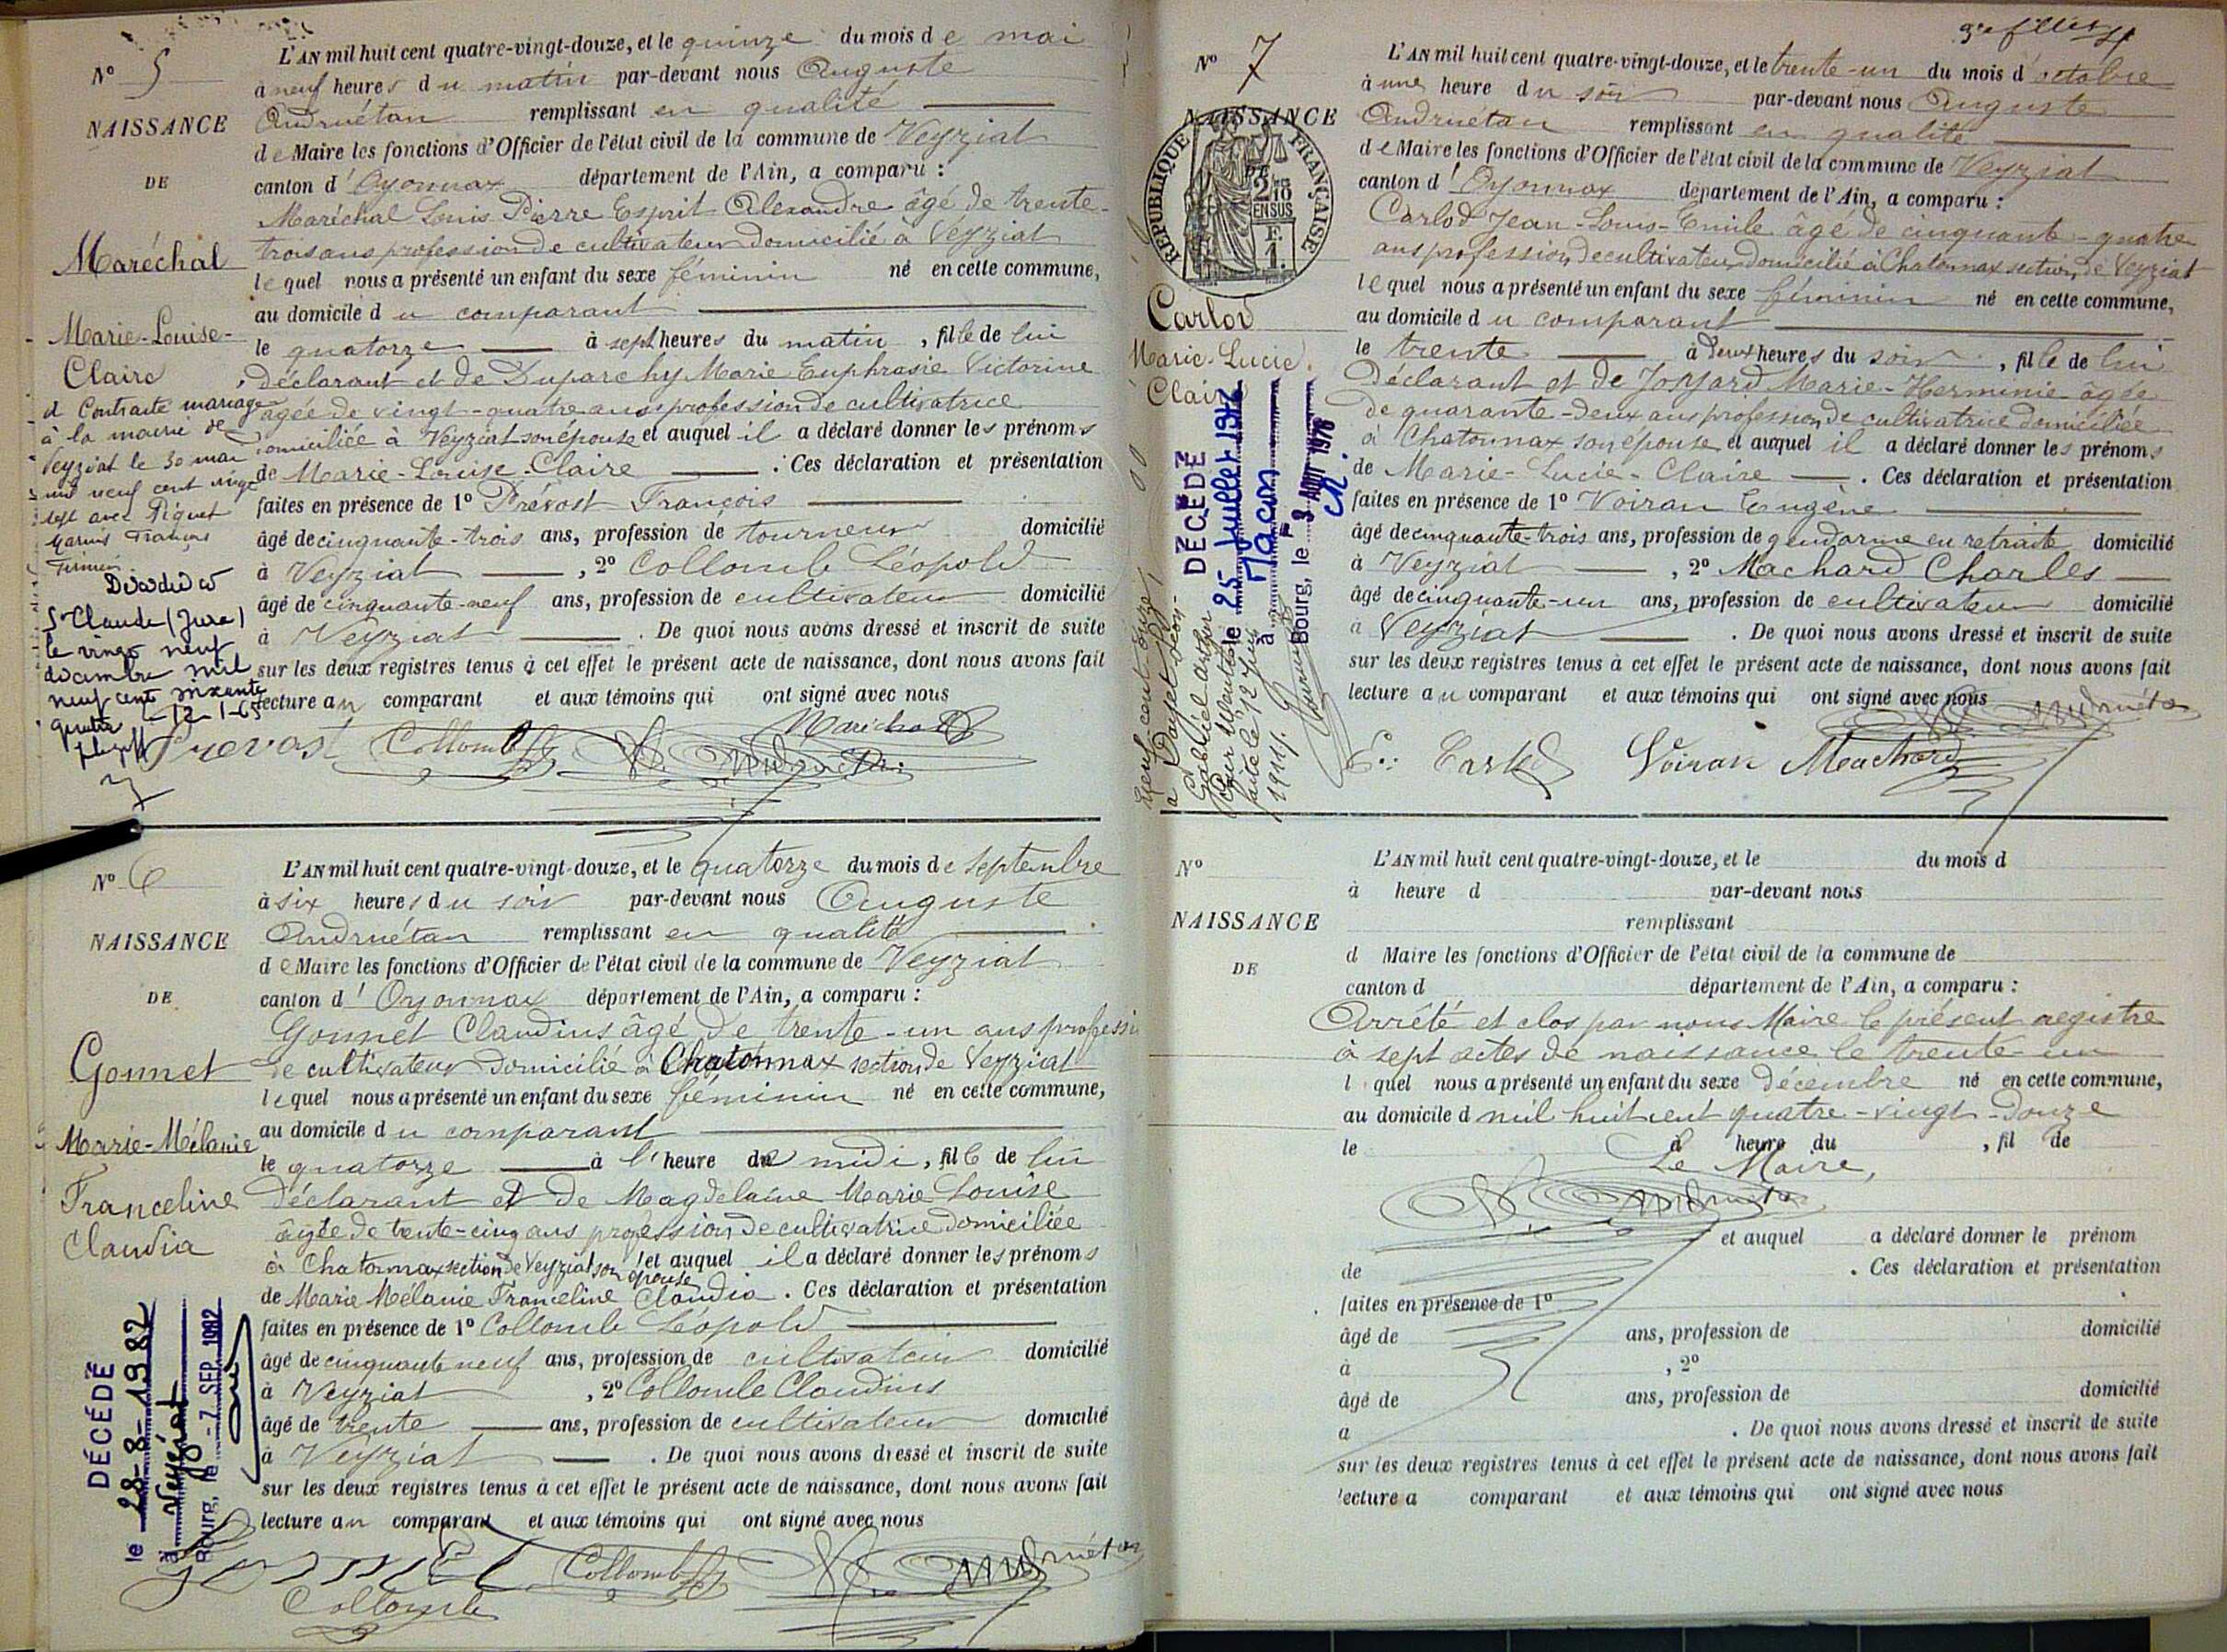 N° 5
NAISSANCE
DE
Maréchal
Marie-Louise-
Claire
à la mairie de
Veyziat le 30 mai
mil neuf cent vingt
sept avec Piquet
Marius François
Firmin.
Décédée à
St Claude (Jura)
le vingt neuf
décembre mil
neuf cent soixante
quatre -12-1-65
L'AN mil huit cent quatre-vingt-douze, et le quinze du mois de mai
à neuf heures du matin par-devant nous Auguste
Andruétan remplissant en qualité
de Maire les fonctions d'Officier de l'état civil de la commune de Veyziat
canton d'Oyonnax département de l'Ain, a comparu :
Maréchal Louis Pierre Esprit Alexandre âgé de trente-
trois ans profession de cultivateur domicilié à Veyziat
lequel nous a présenté un enfant du sexe féminin né en cette commune,
au domicile du comparant
le quatorze à sept heures du matin, fille de lui
déclarant et de Duparchy Marie Euphrasie Victorine
âgée de vingt-quatre ans profession de cultivatrice
domiciliée à Veyziat son épouse et auquel il a déclaré donner les prénoms
de Marie-Louise-Claire. Ces déclaration et présentation
faites en présence de 1° Prévost François
âgé de cinquante-trois ans, profession de tourneur domicilié
à Veyziat, 2° Collomb Léopold
âgé de cinquante-neuf ans, profession de cultivateur domicilié
à Veyziat. De quoi nous avons dressé et inscrit de suite
sur les deux registres tenus à cet effet le présent acte de naissance, dont nous avons fait
lecture au comparant et aux témoins qui ont signé avec nous
Maréchal
Prevost Collomb Andruétan
N° 6
NAISSANCE
DE
Gonnet
Marie-Mélanie
Franceline
Claudia
DÉCÉDÉ
le 28-8-1982
à Veyziat
Bourg, le -7 SEP. 1982
L'AN mil huit cent quatre-vingt-douze, et le quatorze du mois de septembre
à six heures du soir par-devant nous Auguste
Andruétan remplissant en qualité
de Maire les fonctions d'Officier de l'état civil de la commune de Veyziat
canton d'Oyonnax département de l'Ain, a comparu :
Gonnet Claudius âgé de trente-un ans profession
de cultivateur domicilié à Chatonnax section de Veyziat
lequel nous a présenté un enfant du sexe féminin né en cette commune,
au domicile du comparant
le quatorze à l'heure de midi, fille de lui
déclarant et de Magdelaine Marie Louise
âgée de trente-cinq ans profession de cultivatrice domiciliée
à Chatonnax section de Veyziat son épouse et auquel il a déclaré donner les prénoms
de Marie Mélanie Franceline Claudia. Ces déclaration et présentation
faites en présence de 1° Collomb Léopold
âgé de cinquante neuf ans, profession de cultivateur domicilié
à Veyziat, 2° Collomb Claudius
âgé de trente ans, profession de cultivateur domicilié
à Veyziat. De quoi nous avons dressé et inscrit de suite
sur les deux registres tenus à cet effet le présent acte de naissance, dont nous avons fait
lecture au comparant et aux témoins qui ont signé avec nous
Gonnet Collomb Andruétan
Collomb
N° 7
NAISSANCE
RÉPUBLIQUE FRANÇAISE
2/10
EN SUS
Carlod
Marie-Lucie
Claire
DÉCÉDÉ
le 25 juillet 1976
à Macon
Bourg, le 3 AOUT 1976
neuf cent onze,
Gabriel Arthur
Pour mention
faite le 12 juin
1911.
L'AN mil huit cent quatre-vingt-douze, et le trente-un du mois d'octobre
à une heure du soir par-devant nous Auguste
Andruétan remplissant en qualité
de Maire les fonctions d'Officier de l'état civil de la commune de Veyziat
canton d'Oyonnax département de l'Ain, a comparu :
Carlod Jean-Louis-Emile âgé de cinquante-quatre
ans profession de cultivateur domicilié à Chatonnax section de Veyziat
lequel nous a présenté un enfant du sexe féminin né en cette commune,
au domicile du comparant
le trente à deux heures du soir, fille de lui
déclarant et de Jossard Marie-Herminie âgée
de quarante-deux ans profession de cultivatrice domiciliée
à Chatonnax son épouse et auquel il a déclaré donner les prénoms
de Marie-Lucie-Claire. Ces déclaration et présentation
faites en présence de 1° Voiran Eugène
âgé de cinquante-trois ans, profession de gendarme en retraite domicilié
à Veyziat, 2° Machard Charles
âgé de cinquante-un ans, profession de cultivateur domicilié
à Veyziat. De quoi nous avons dressé et inscrit de suite
sur les deux registres tenus à cet effet le présent acte de naissance, dont nous avons fait
lecture au comparant et aux témoins qui ont signé avec nous
Andruétan
E. Carlod Voiran Machard
N°
NAISSANCE
DE
L'AN mil huit cent quatre-vingt-douze, et le du mois d
à heure d par-devant nous
remplissant
d Maire les fonctions d'Officier de l'état civil de la commune de
canton d département de l'Ain, a comparu :
Arrêté et clos par nous Maire le présent registre
à sept actes de naissance le trente-un
l quel nous a présenté un enfant du sexe décembre né en cette commune,
au domicile d mil huit cent quatre-vingt-douze
le à heure du , fil de
Le Maire,
Andruétan
et auquel a déclaré donner le prénom
de . Ces déclaration et présentation
faites en présence de 1°
âgé de ans, profession de domicilié
à , 2°
âgé de ans, profession de domicilié
a . De quoi nous avons dressé et inscrit de suite
sur les deux registres tenus à cet effet le présent acte de naissance, dont nous avons fait
lecture a comparant et aux témoins qui ont signé avec nous